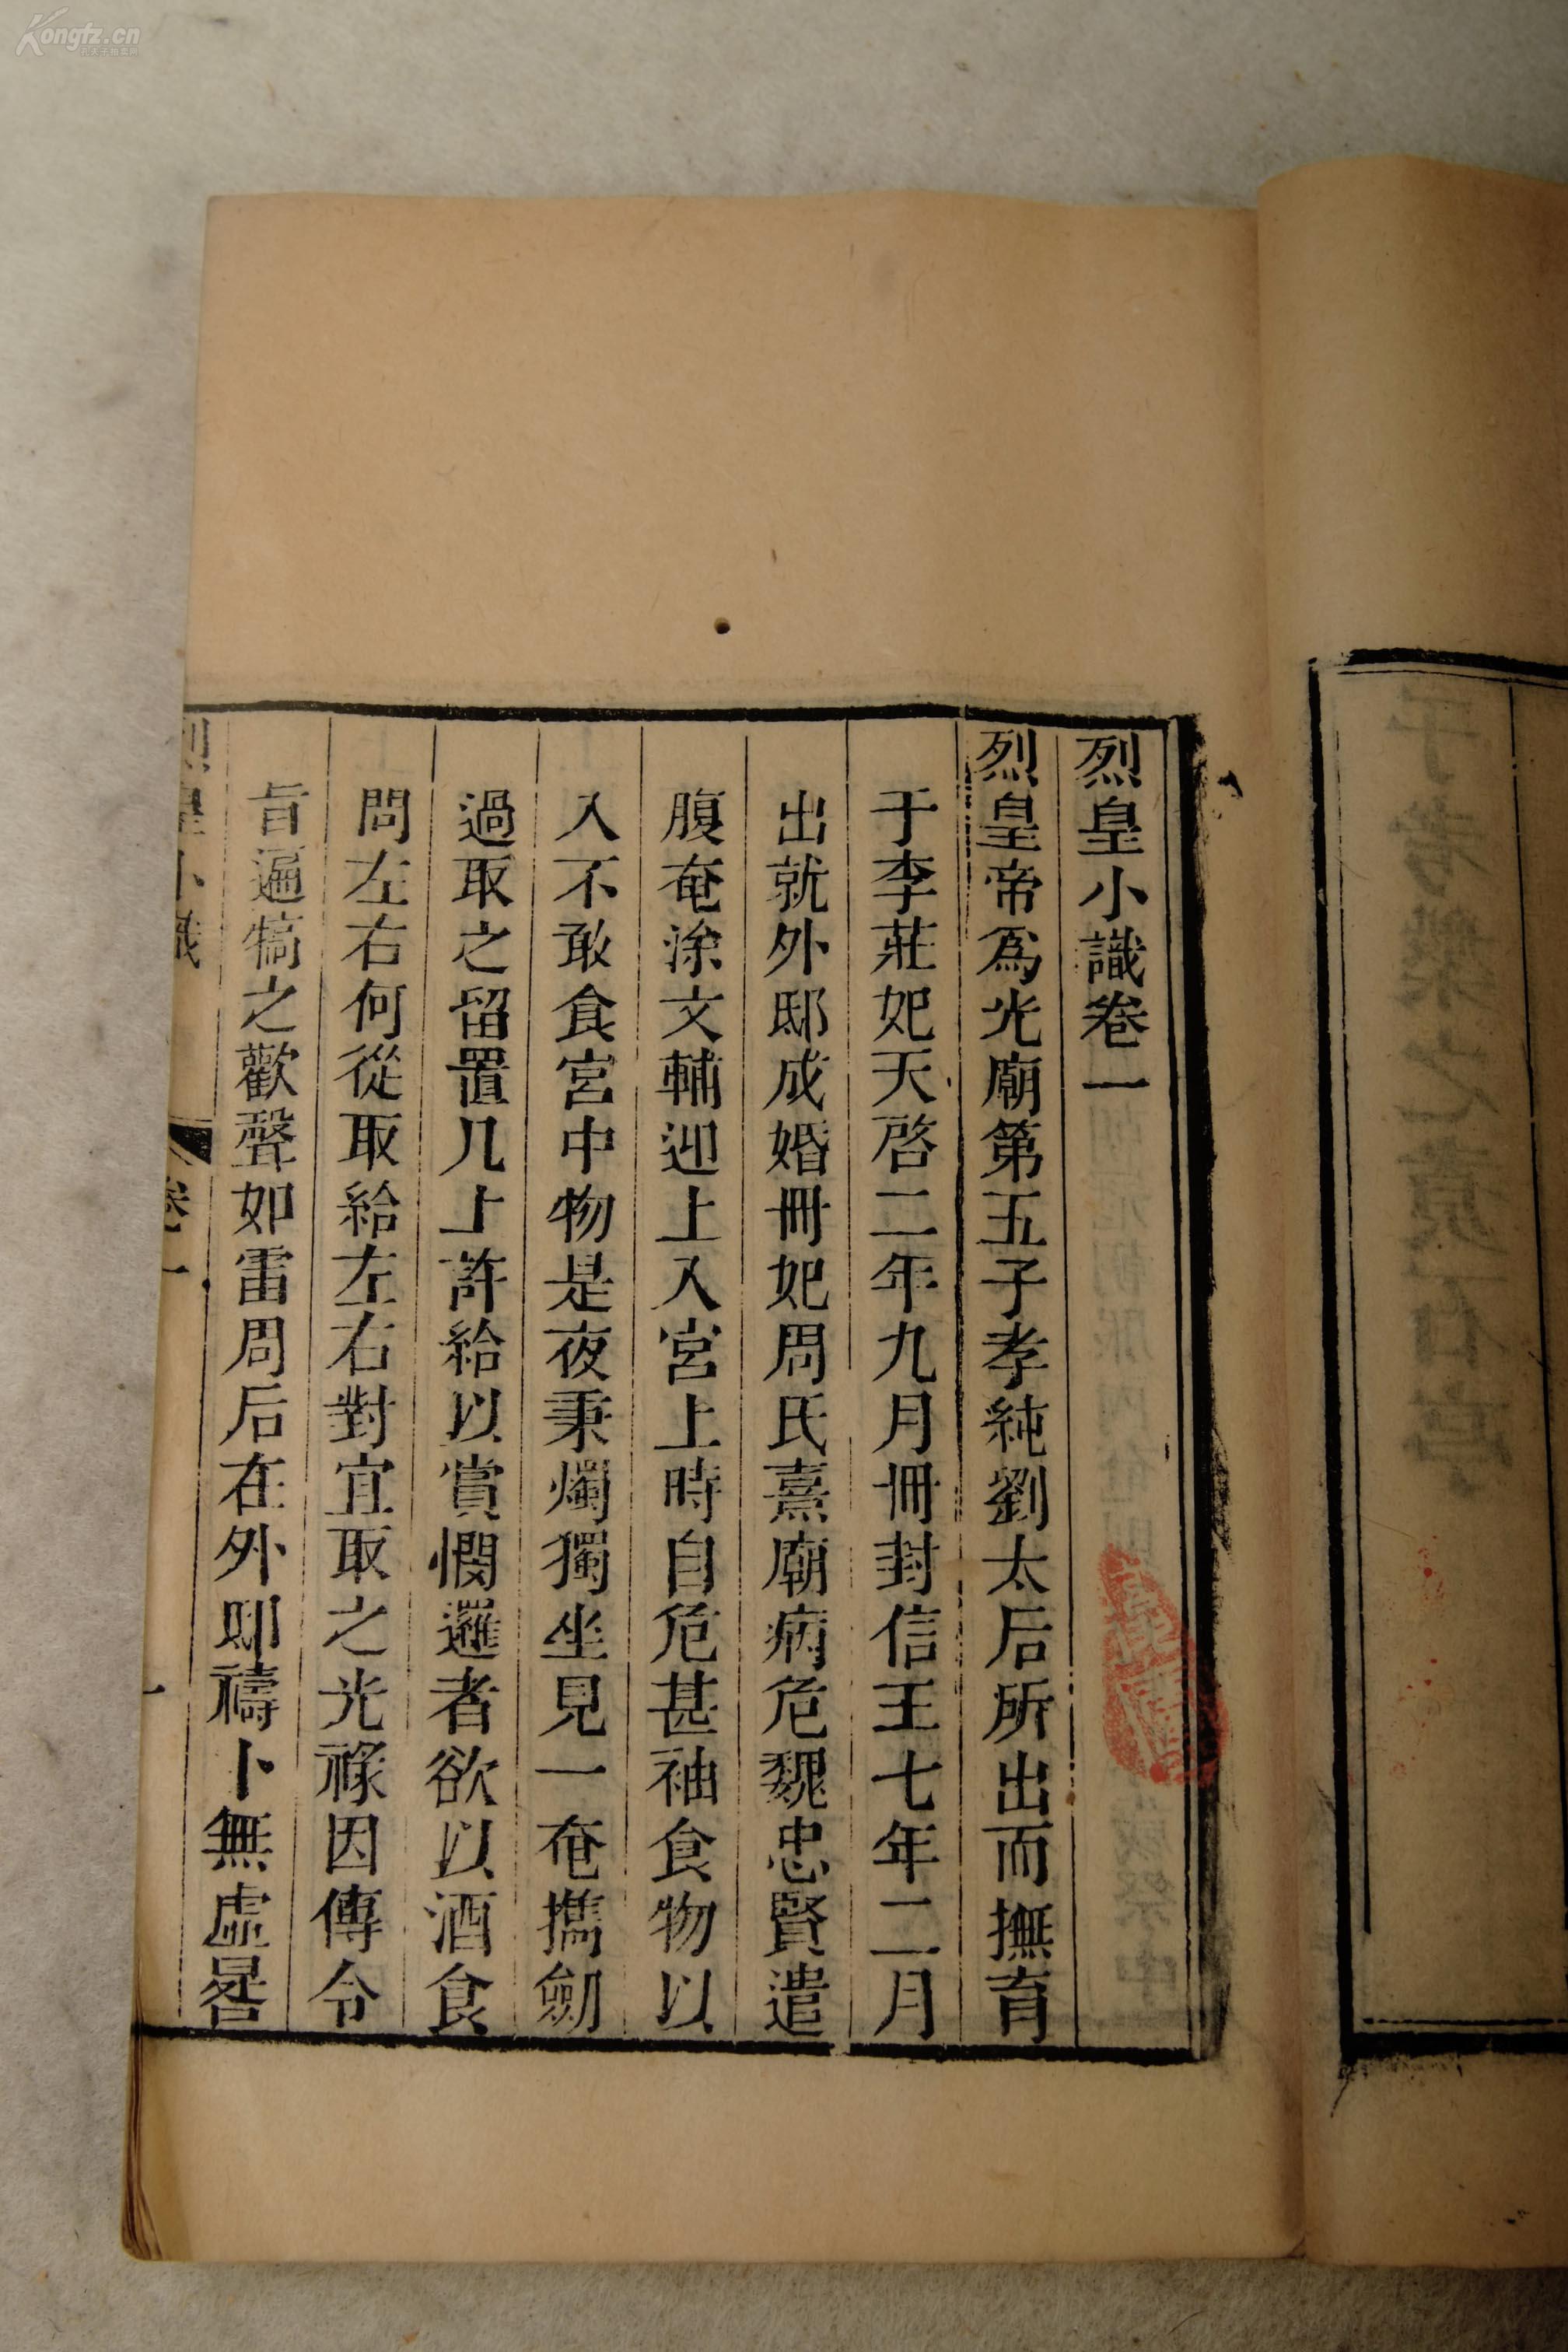 烈皇小識卷一
烈皇帝爲光廟第五子孝純劉太后所出而撫育
于李莊妃天啓二年九月冊封信王七年二月
出就外邸成婚冊妃周氏熹廟病危魏忠賢遣
腹奄涂文輔迎上入宮上時自危甚袖食物以
入不敢食宮中物是夜秉燭獨坐見一奄攜劒
過取之留置几上許給以賞憫邏者欲以酒食
問左右何從取給左右對宜取之光祿因傳令
旨遍犒之歡聲如雷周后在外即禱卜無虛晷
烈皇小識
卷一
一
Kongfz.cn